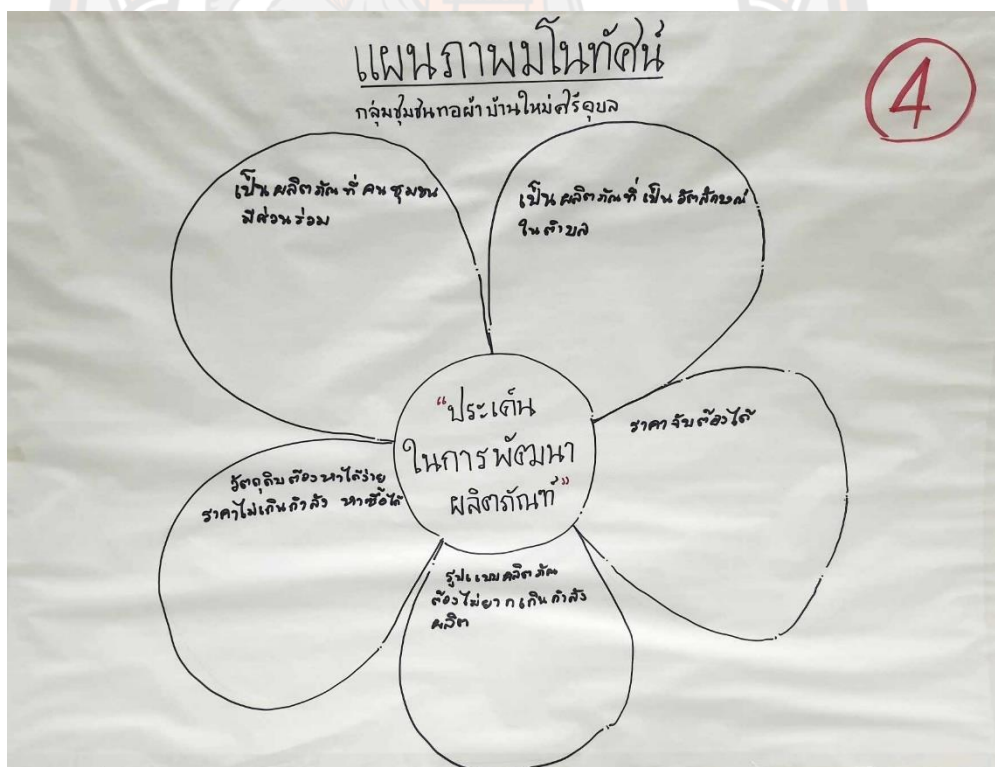 แผนภาพมโนทัศน์
กลุ่มชุมชนทอผ้าบ้านใหม่ศรีอุบล
4
เป็นผลิตภัณที่คนชุมชน
มีส่วนร่วม
เป็นผลิตภัณที่เป็นอัตลักษณ์
ในตำบล
"ประเด็น
ในการพัฒนา
ผลิตภัณฑ์"
ราคาจับต้องได้
วัตถุดิบต้องหาได้ง่าย
ราคาไม่เกินกำลัง หาซื้อได้
รูปแบบผลิตภัณ
ต้องไม่ยากเกินกำลัง
ผลิต